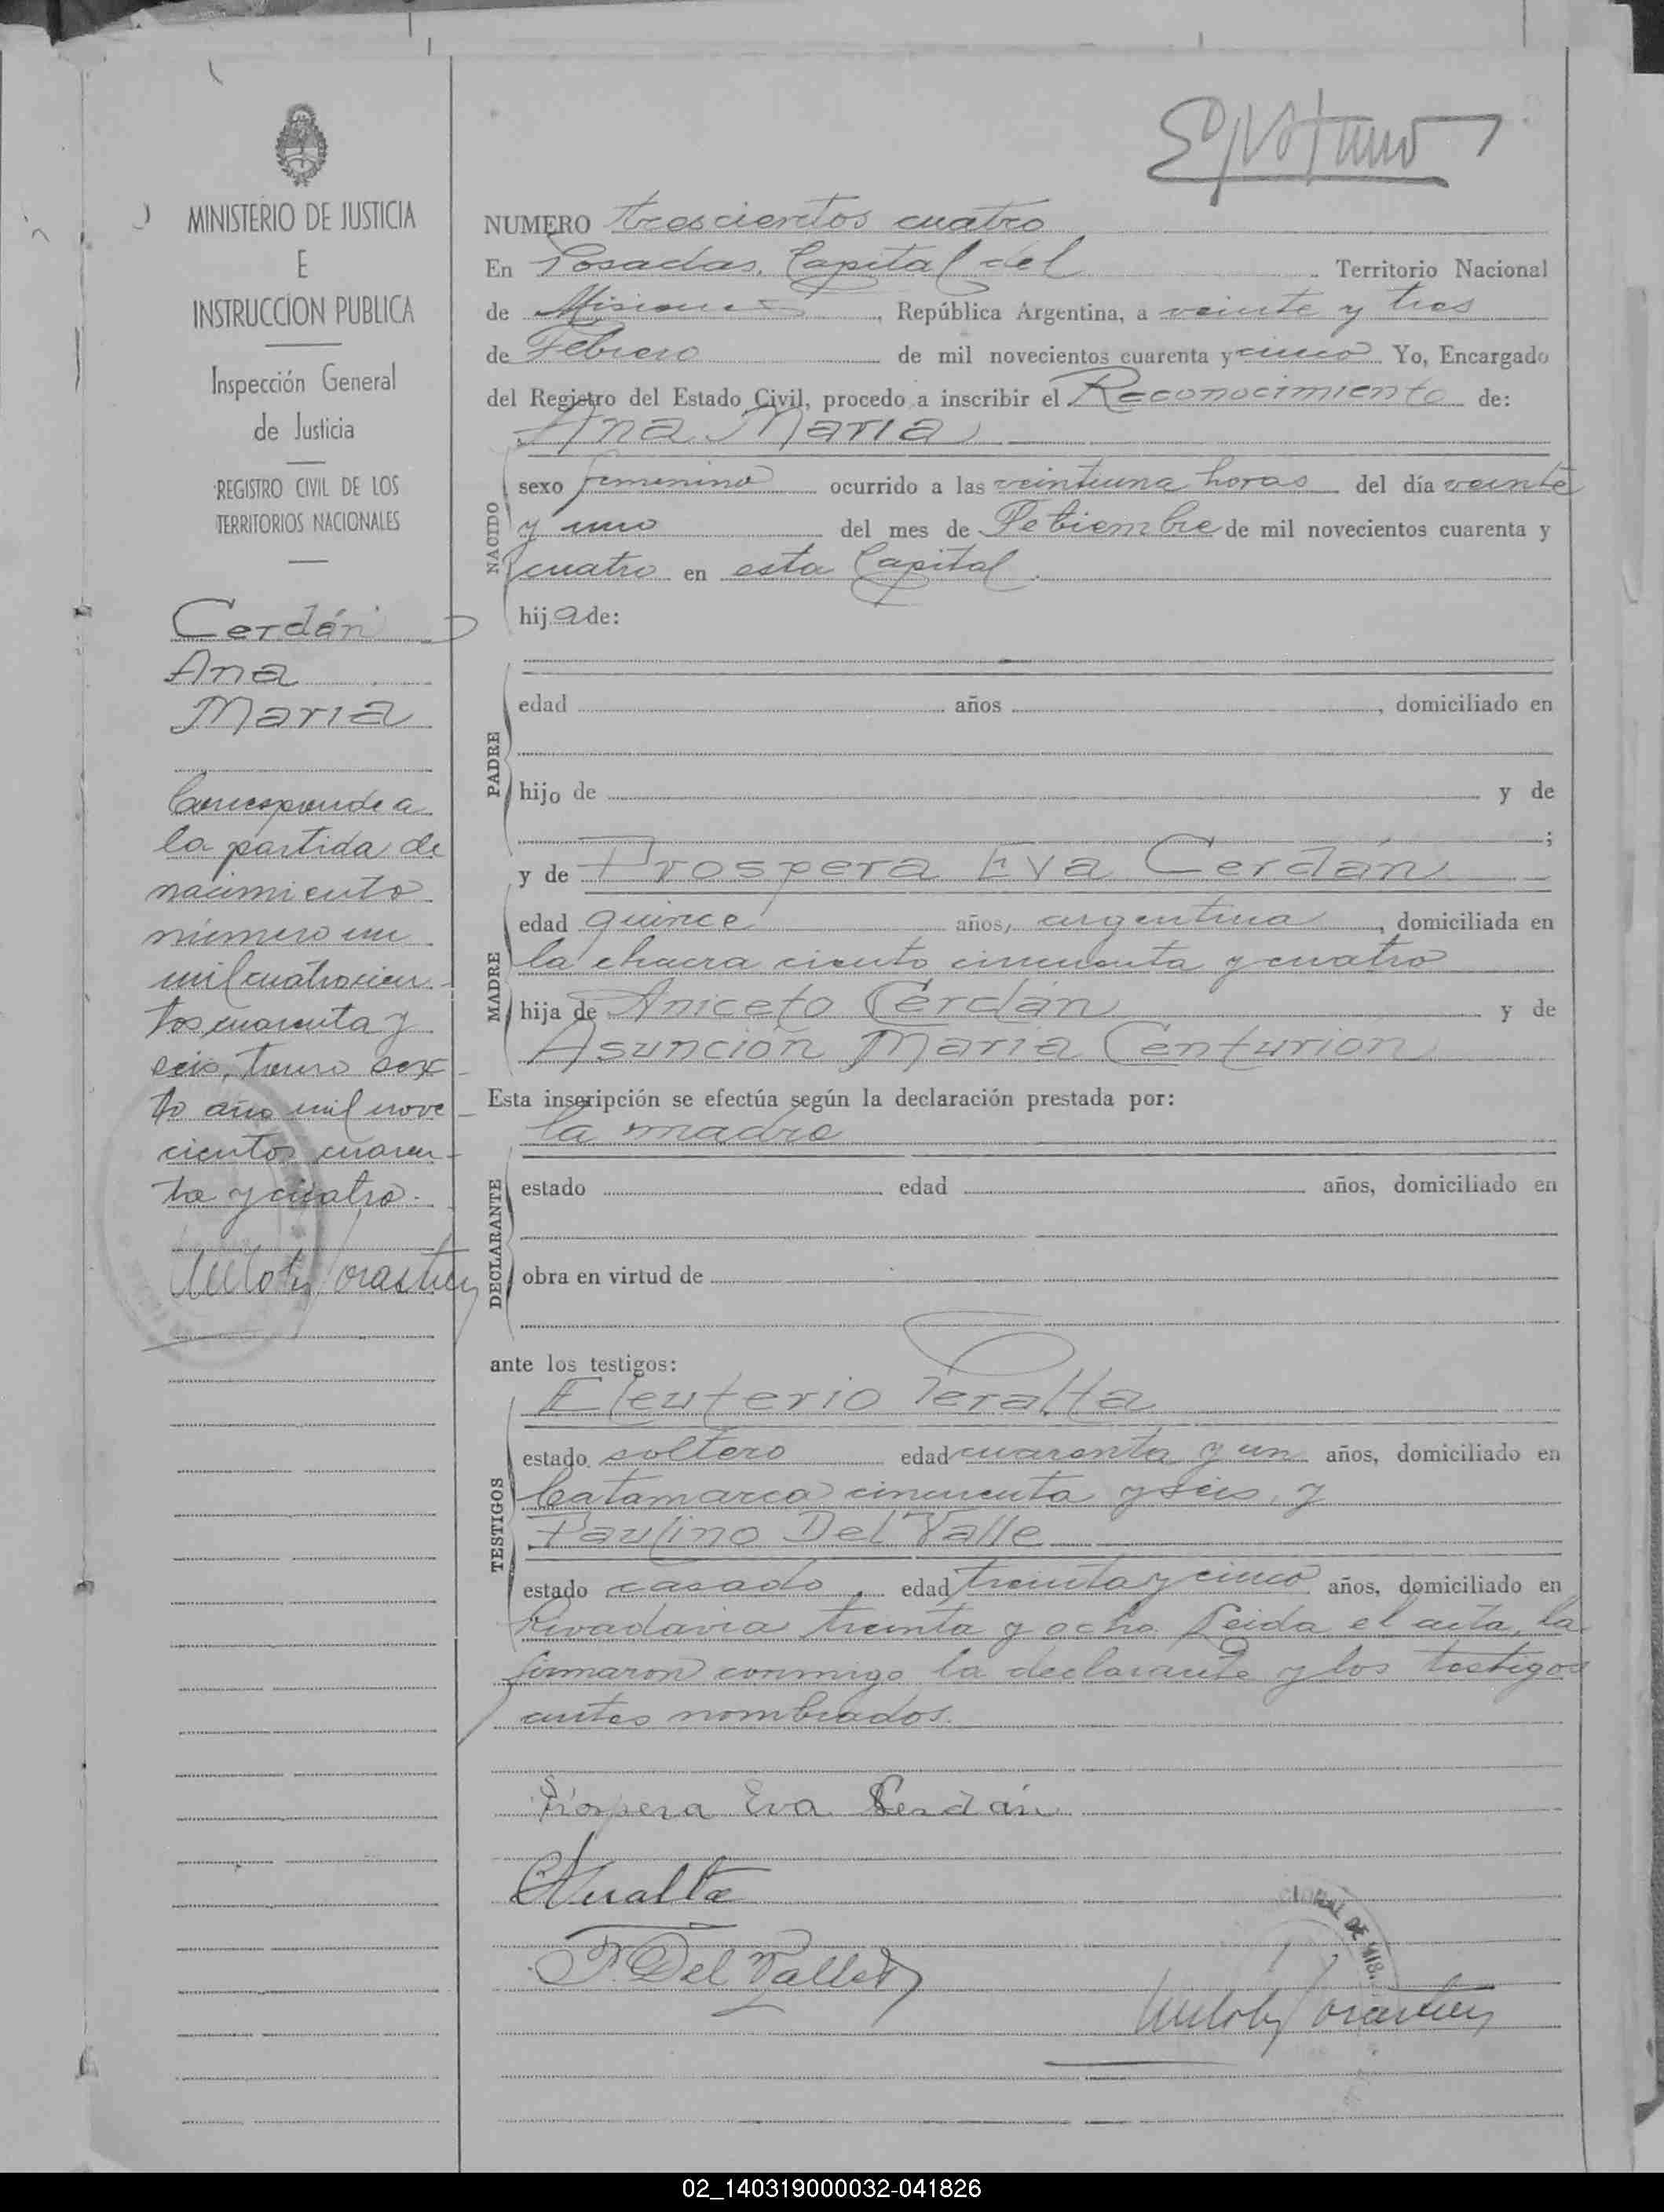 MINISTERIO DE JUSTICIA
E
INSTRUCCION PUBLICA
Inspección General
de Justicia
REGISTRO CIVIL DE LOS
TERRITORIOS NACIONALES
Cerdán
Ana
Maria
Corresponde a
la partida de
nacimiento
número un
mil cuatrocien
tos cuarenta y
seis, tomo sex
to año mil nove
cientos cuaren
ta y cuatro.
NUMERO trescientos cuatro
En Posadas, Capital del Territorio Nacional
de Misiones, República Argentina, a veinte y tres
de Febrero de mil novecientos cuarenta y cinco Yo, Encargado
del Registro del Estado Civil, procedo a inscribir el Reconocimiento de:
Ana Maria
NACIDO
sexo femenino ocurrido a las veintiuna horas del día veinte
y uno del mes de Setiembre de mil novecientos cuarenta y
cuatro en esta Capital.
hija de:
PADRE
edad años , domiciliado en
hijo de y de
;
y de Prospera Eva Cerdán
MADRE
edad quince años, argentina, domiciliada en
la chacra ciento cincuenta y cuatro
hija de Aniceto Cerdán y de
Asunción Maria Centurión
Esta inscripción se efectúa según la declaración prestada por:
la madre
DECLARANTE
estado edad años, domiciliado en
obra en virtud de
ante los testigos:
Eleuterio Peralta
TESTIGOS
estado soltero edad cuarenta y un años, domiciliado en
Catamarca cincuenta y seis, y
Paulino Del Valle
estado casado, edad treinta y cinco años, domiciliado en
Rivadavia treinta y ocho. Leida el acta, la
firmaron conmigo la declarante y los testigos
antes nombrados.
Prospera Eva Cerdán
EPeralta
P. Del Valle
CIONAL DE MIS.
02_140319000032-041826